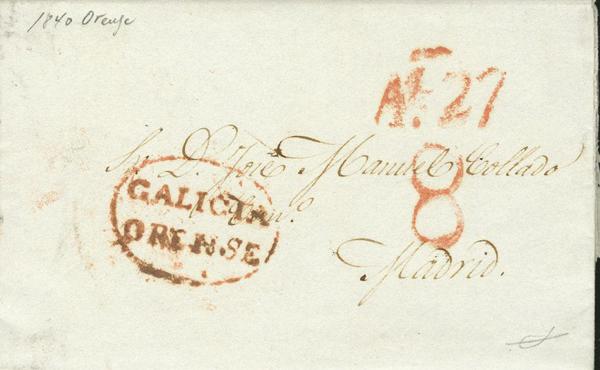 1840 Orense
Ao. 27
Sr. D. José Manuel Collado
8
GALICIA
ORENSE
Madrid.